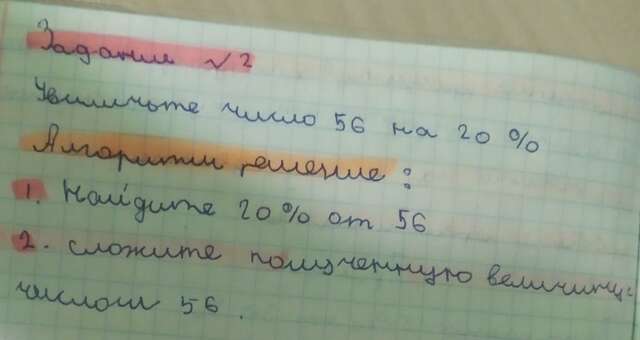 Задание √2
Увеличьте число 56 на 20 %
Алгоритм решение :
1. Найдите 20 % от 56
2. сложите полученную величину
числом 56.